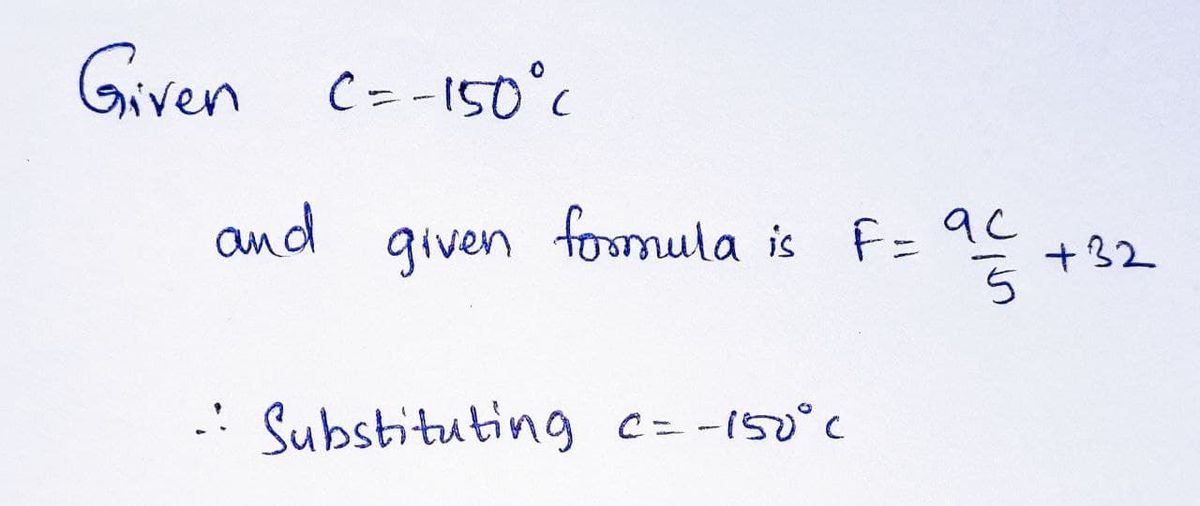 Given C = -150°C
and given formula is F = 9C/5 + 32
∴ Substituting C = -150°C